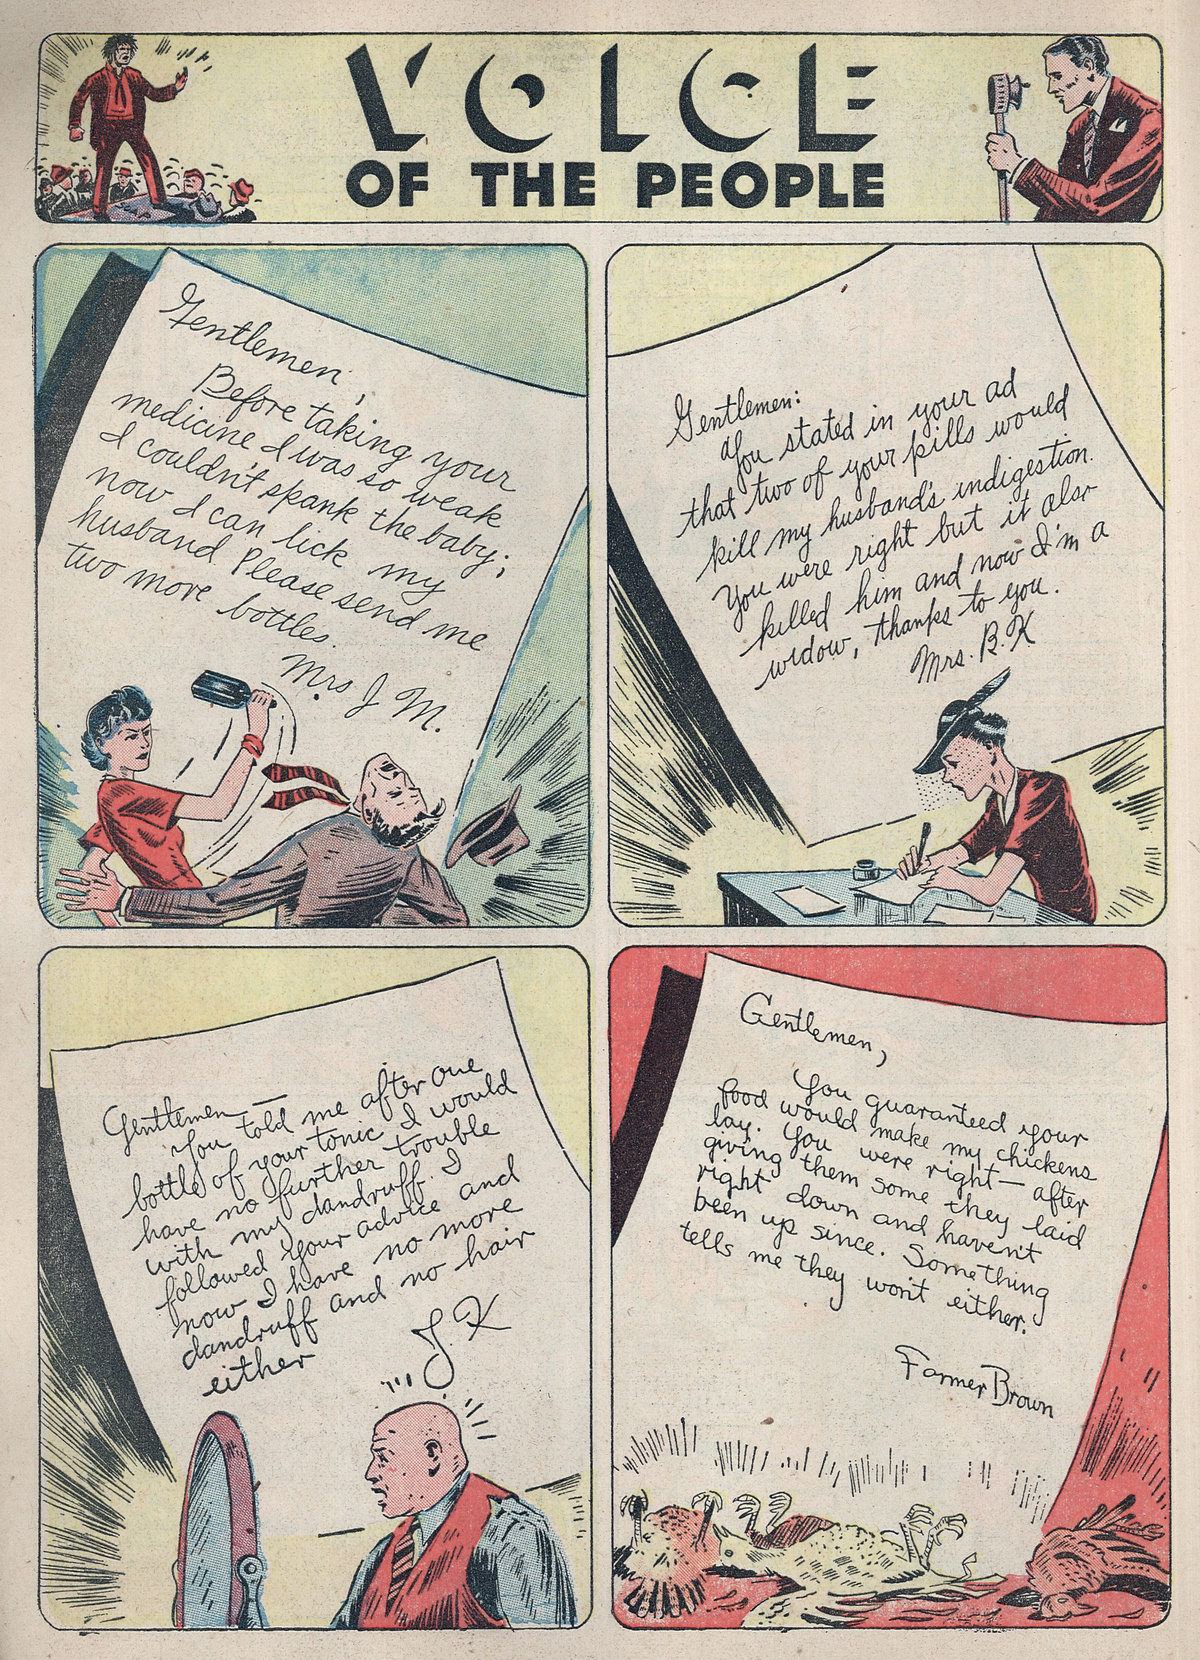 VOICE
OF THE PEOPLE
Gentlemen,
Before taking your
medicine I was so weak
I couldn't spank the baby;
now I can lick my
husband. Please send me
two more bottles.
Mrs J M.
Gentlemen:
You stated in your ad
that two of your pills would
kill my husband's indigestion.
You were right but it also
killed him and now I'm a
widow, thanks to you.
Mrs. B. K
Gentlemen —
You told me after one
bottle of your tonic I would
have no further trouble
with my dandruff. I
followed your advice and
now I have no more
dandruff and no hair
either
J. K
Gentlemen,
You guaranteed your
food would make my chickens
lay. You were right — after
giving them some they laid
right down and haven't
been up since. Something
tells me they won't either.
Farmer Brown